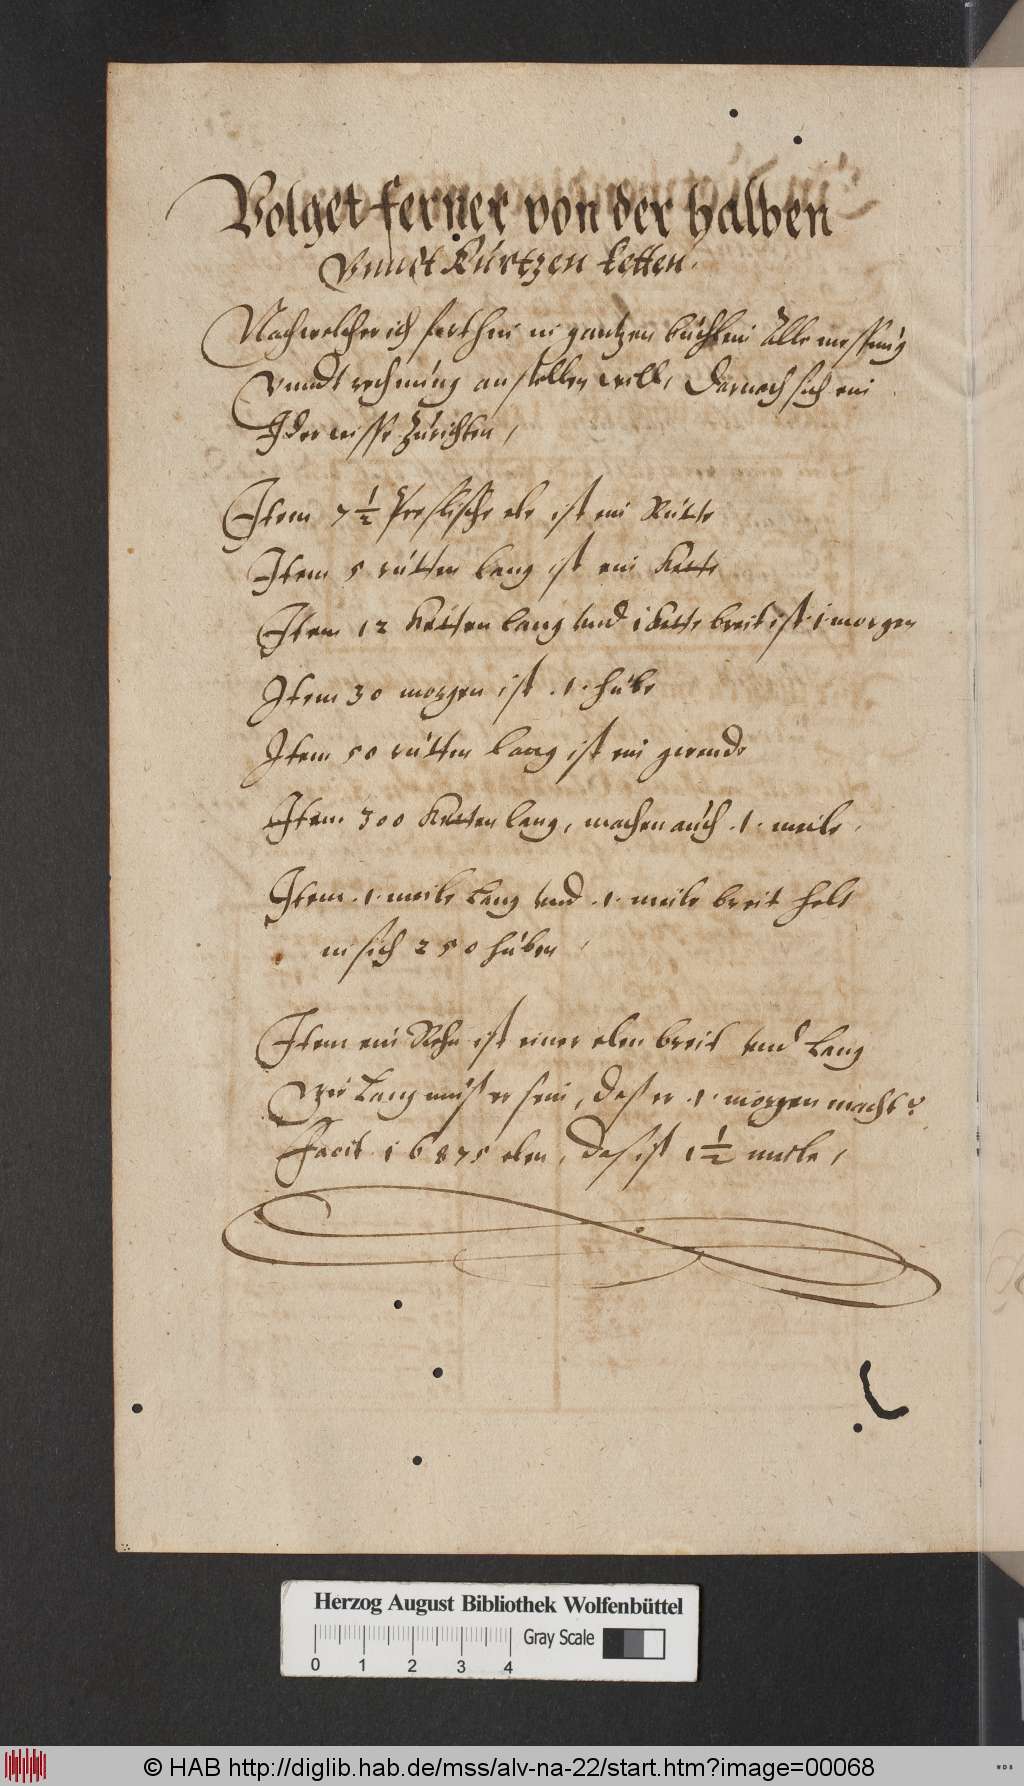 Volget ferner von der halben
vnndt kürtzen ketten.
Nach welcher ich forthin in gantzen büchlein alle messung
vnndt rechnüng anstellen will, darnach sich ein
Jder wisse zürichten,
Item 7 1/2 Preslische ele ist ein Rütte
Item 5 rütten lang ist ein Kette
Item 12 Ketten lang vnd 1 kette breit ist 1 morgen
Item 30 morgen ist .1. hübe
Item 50 rütten lang ist ein gewende
Item 300 Ketten lang, machen aüch .1. meile,
Item .1. meile lang vnd .1. meile breit helt
in sich 250 hüben,
Item ein Rehn ist einer elen breit vnd lang
Wie lang müst er sein, das er .1. morgen macht?
Facit 16875 elen, das ist 1 1/2 meile,
Herzog August Bibliothek Wolfenbüttel
Gray Scale
0 1 2 3 4
© HAB http://diglib.hab.de/mss/alv-na-22/start.htm?image=00068